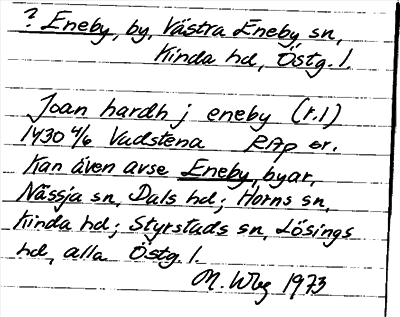 ? Eneby, by, Västra Eneby sn,
Kinda hd, Östg. l.
Joan hardh j eneby (r.1)
1430 4/6 Vadstena RAp or.
Kan även avse Eneby, byar,
Nässja sn, Dals hd; Horns sn,
Kinda hd; Styrstads sn, Lösings
hd, alla Östg. l.
M. Wbg 1973